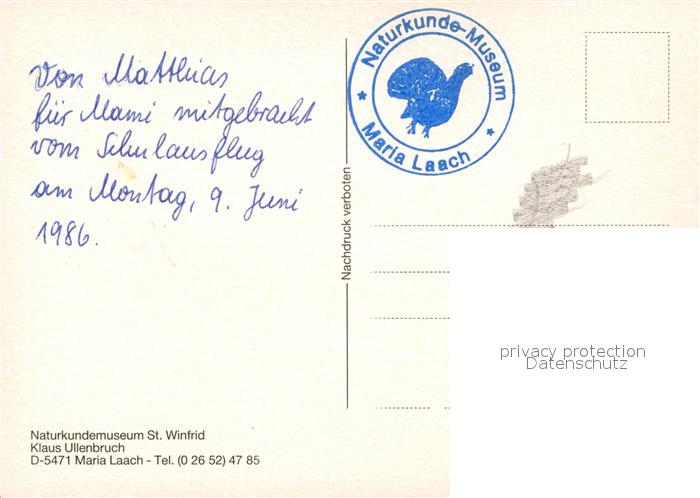 Von Matthias
für Mami mitgebracht
vom Schulausflug
am Montag, 9. Juni
1986.
Naturkunde-Museum
Maria Laach
Nachdruck verboten
privacy protection
Datenschutz
Naturkundemuseum St. Winfrid
Klaus Ullenbruch
D-5471 Maria Laach - Tel. (0 26 52) 47 85